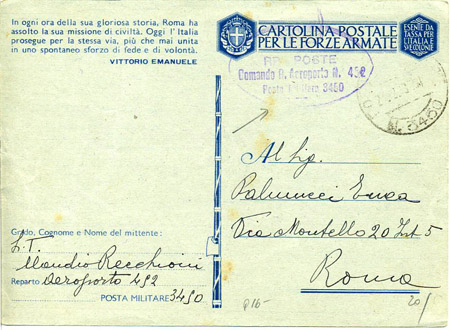 In ogni ora della sua gloriosa storia, Roma ha
assolto la sua missione di civiltà. Oggi l'Italia
prosegue per la stessa via, più che mai unita
in uno spontaneo sforzo di fede e di volontà.
VITTORIO EMANUELE
CARTOLINA POSTALE
PER LE FORZE ARMATE
ESENTE DA
TASSA PER
L'ITALIA E
SUE COLONIE
POSTE
Comando R. Aeroporto N.
Posta Militare 3450
3450
Al Sig.
Palmucci
Via Montello 20 Int 5
Roma
Grado, Cognome e Nome del mittente:
Claudio Recchioni
Reparto Aeroporto 492
POSTA MILITARE 3450
20/